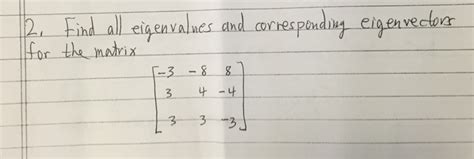 2. Find all eigenvalues and corresponding eigenvectors
for the matrix
-3 -8 8
3 4 -4
3 3 -3